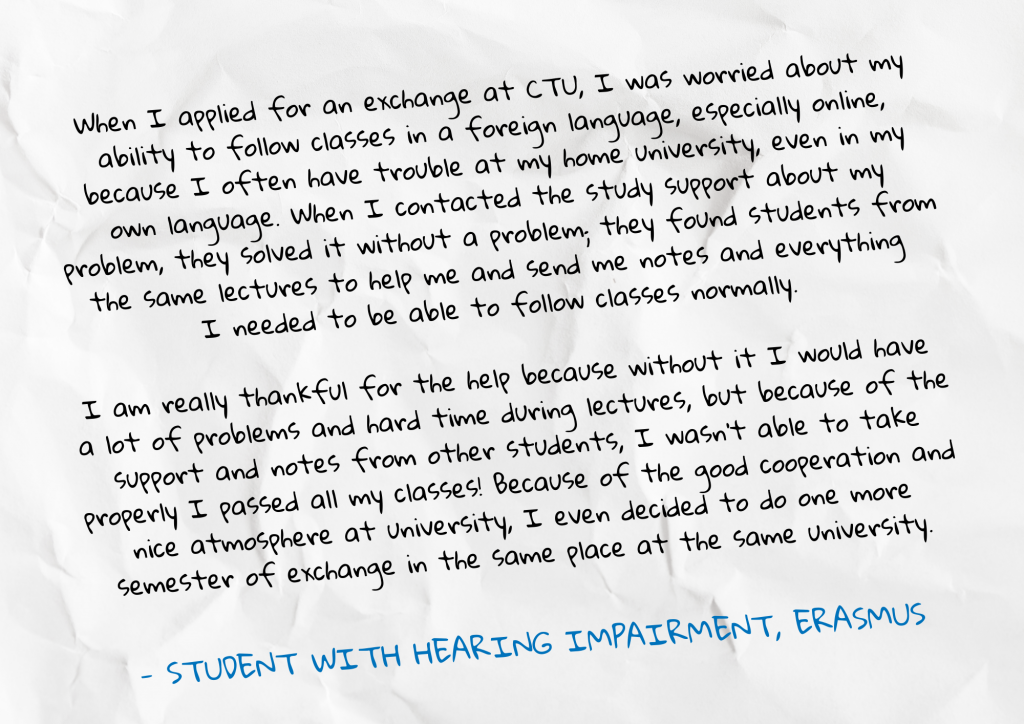 When I applied for an exchange at CTU, I was worried about my
ability to follow classes in a foreign language, especially online,
because I often have trouble at my home university, even in my
own language. When I contacted the study support about my
problem, they solved it without a problem; they found students from
the same lectures to help me and send me notes and everything
I needed to be able to follow classes normally.
I am really thankful for the help because without it I would have
a lot of problems and hard time during lectures, but because of the
support and notes from other students, I wasn't able to take
properly I passed all my classes! Because of the good cooperation and
nice atmosphere at university, I even decided to do one more
semester of exchange in the same place at the same university.
- STUDENT WITH HEARING IMPAIRMENT, ERASMUS